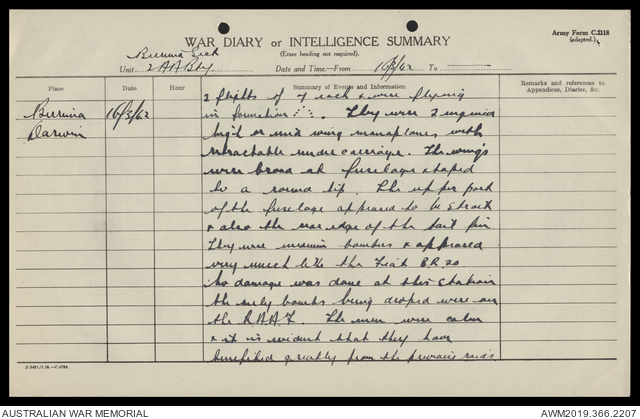 Army Form C.2118
(adapted.)
WAR DIARY or INTELLIGENCE SUMMARY
(Erase heading not required).
Berrima Sect
Unit 2 AA Bty Date and Time—From 16/3/42 To
Place Date Hour Summary of Events and Information Remarks and references to Appendices, Diaries, &c.
2 flights of 7 each & were flying
Berrima 16/3/42 in formation. They were 2 engined
Darwin high or mid wing monoplanes with
retractable under carriage. The wings
were broad at fuselage & taped
to a round tip. The upper part
of the fuselage appeared to be straight
& also the rear edge of the tail fin
They were medium bombers & appeared
very much like the Fiat B.R. 20
No damage was done at this station
the only bombs being droped were on
the R.A.A.F. The men were calm
& it is evident that they have
benefited greatly from the previous raids
AUSTRALIAN WAR MEMORIAL AWM2019.366.2207